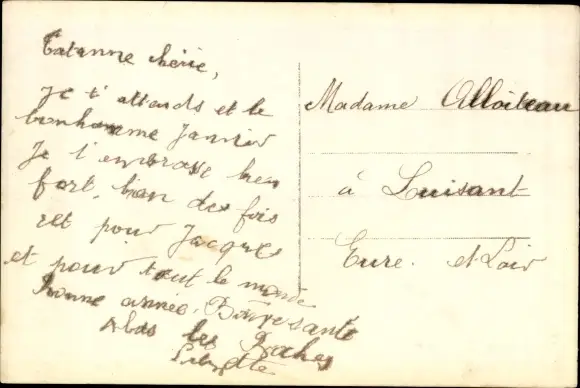 Tatanne chérie,
je t'attends et le
bonhomme Janvier
Je t'embrasse bien
fort, bien des fois
et pour Jacques
et pour tout le monde
bonne année, Bonne santé
les
Madame Alloiteau
à Luisant
Eure et Loir